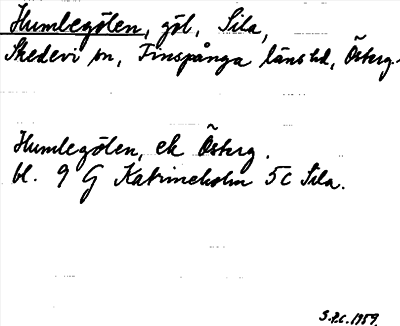 Humlegölen, göl, Sila,
Skedevi sn, Finspånga länshd, Österg.
Humlegölen, ek Österg.
bl. 9 G Katrineholm 5c Sila.
S.R.C. 1959.